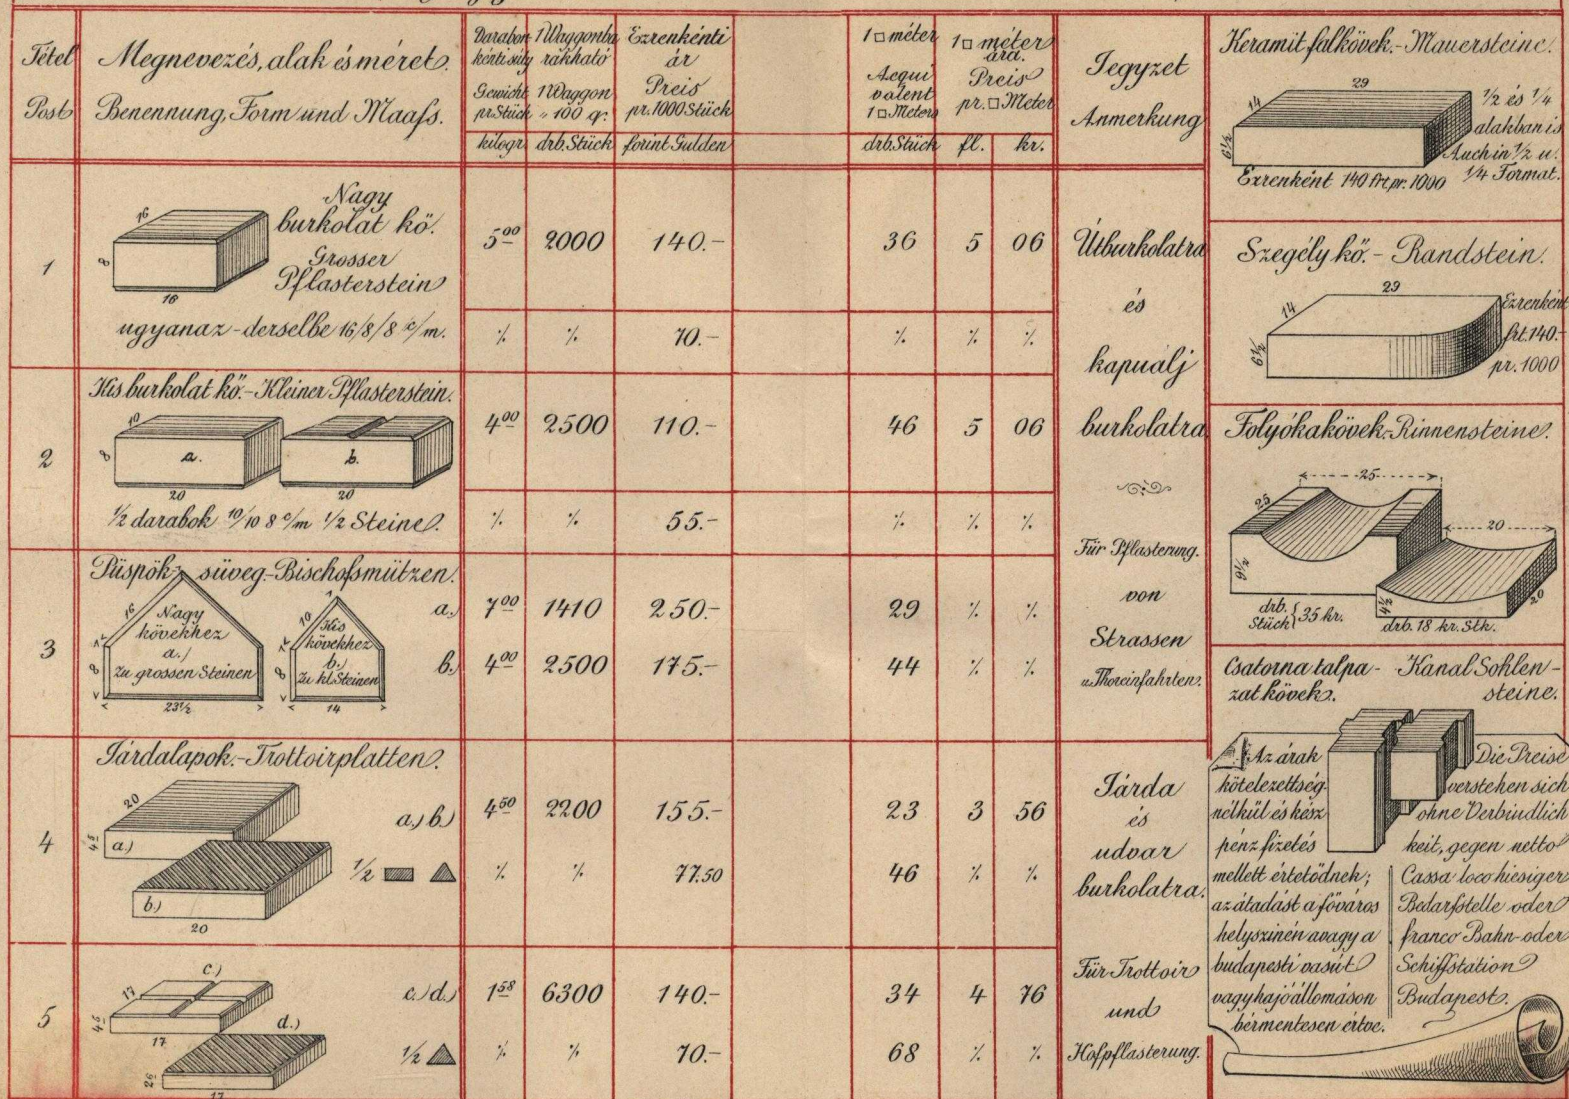 Tétel
Post
Megnevezés, alak és méret.
Benennung, Form und Maafs.
Darabon
kénti súly
Gewicht
pr. Stück
kilogr.
1 Waggonba
rakható
1 Waggon
= 100 q.
drb. Stück
Ezrenkénti
ár
Preis
pr. 1000 Stück
forint Gulden
1 □ méter
Aequi
valent
1 □ Meters
drb. Stück
1 □ méter
ára.
Preis
pr. □ Meter
fl. kr.
Jegyzet
Anmerkung
1
Nagy
burkolat kő.
Grosser
Pflasterstein
16
8
16
5 00 2000 140.- 36 5 06
ugyanaz - derselbe 16/8/8 c/m. ⁒ ⁒ 70.- ⁒ ⁒ ⁒
2
Kis burkolat kő. - Kleiner Pflasterstein.
10
8
a. b.
20 20
4 00 2500 110.- 46 5 06
1/2 darabok 10/10 8 c/m 1/2 Steine. ⁒ ⁒ 55.- ⁒ ⁒ ⁒
3
Püspök süveg - Bischofsmützen.
16
Nagy
kövekhez
a.)
zu grossen Steinen
8
23 1/2
10
Kis
kövekhez
b.)
zu kl. Steinen
8
14
a.) 7 00 1410 250.- 29 ⁒ ⁒
b.) 4 00 2500 175.- 44 ⁒ ⁒
4
Járdalapok. - Trottoirplatten.
20
4 5
a)
b.)
20
a.) b.) 4 50 2200 155.- 23 3 56
1/2 ⁒ ⁒ 77.50 46 ⁒ ⁒
5
c.)
17
4 5
17
d.)
26
17
c.) d.) 1 58 6300 140.- 34 4 76
1/2 ⁒ ⁒ 70.- 68 ⁒ ⁒
Útburkolatra
és
kapualj
burkolatra.
Für Pflasterung.
von
Strassen
u. Thoreinfahrten.
Járda
és
udvar
burkolatra.
Für Trottoir
und
Hofpflasterung.
Keramit falkövek. - Mauersteine.
29
14
6 1/2
1/2 és 1/4
alakban is
Auch in 1/2 u.
1/4 Format.
Ezrenként 140 frt. pr. 1000
Szegély kő. - Randstein.
29
14
6 1/2
Ezrenként
frt. 140.-
pr. 1000
Folyókakövek. - Rinnensteine.
25
25
20
6 1/2
4 1/2
20
drb.
Stück } 35 kr.
drb. 18 kr. Stk.
Csatorna talpa-
zat kövek.
Kanal Sohlen-
steine.
Az árak
kötelezettség-
nélkül és kész
pénz fizetés
mellett értetődnek;
az átadást a főváros
helyszinén avagy a
budapesti vasút
vagy hajóállomáson
bérmentesen értve.
Die Preise
verstehen sich
ohne Verbindlich
keit, gegen netto
Cassa loco hiesiger
Bedarfstelle oder
franco Bahn- oder
Schiffstation
Budapest.